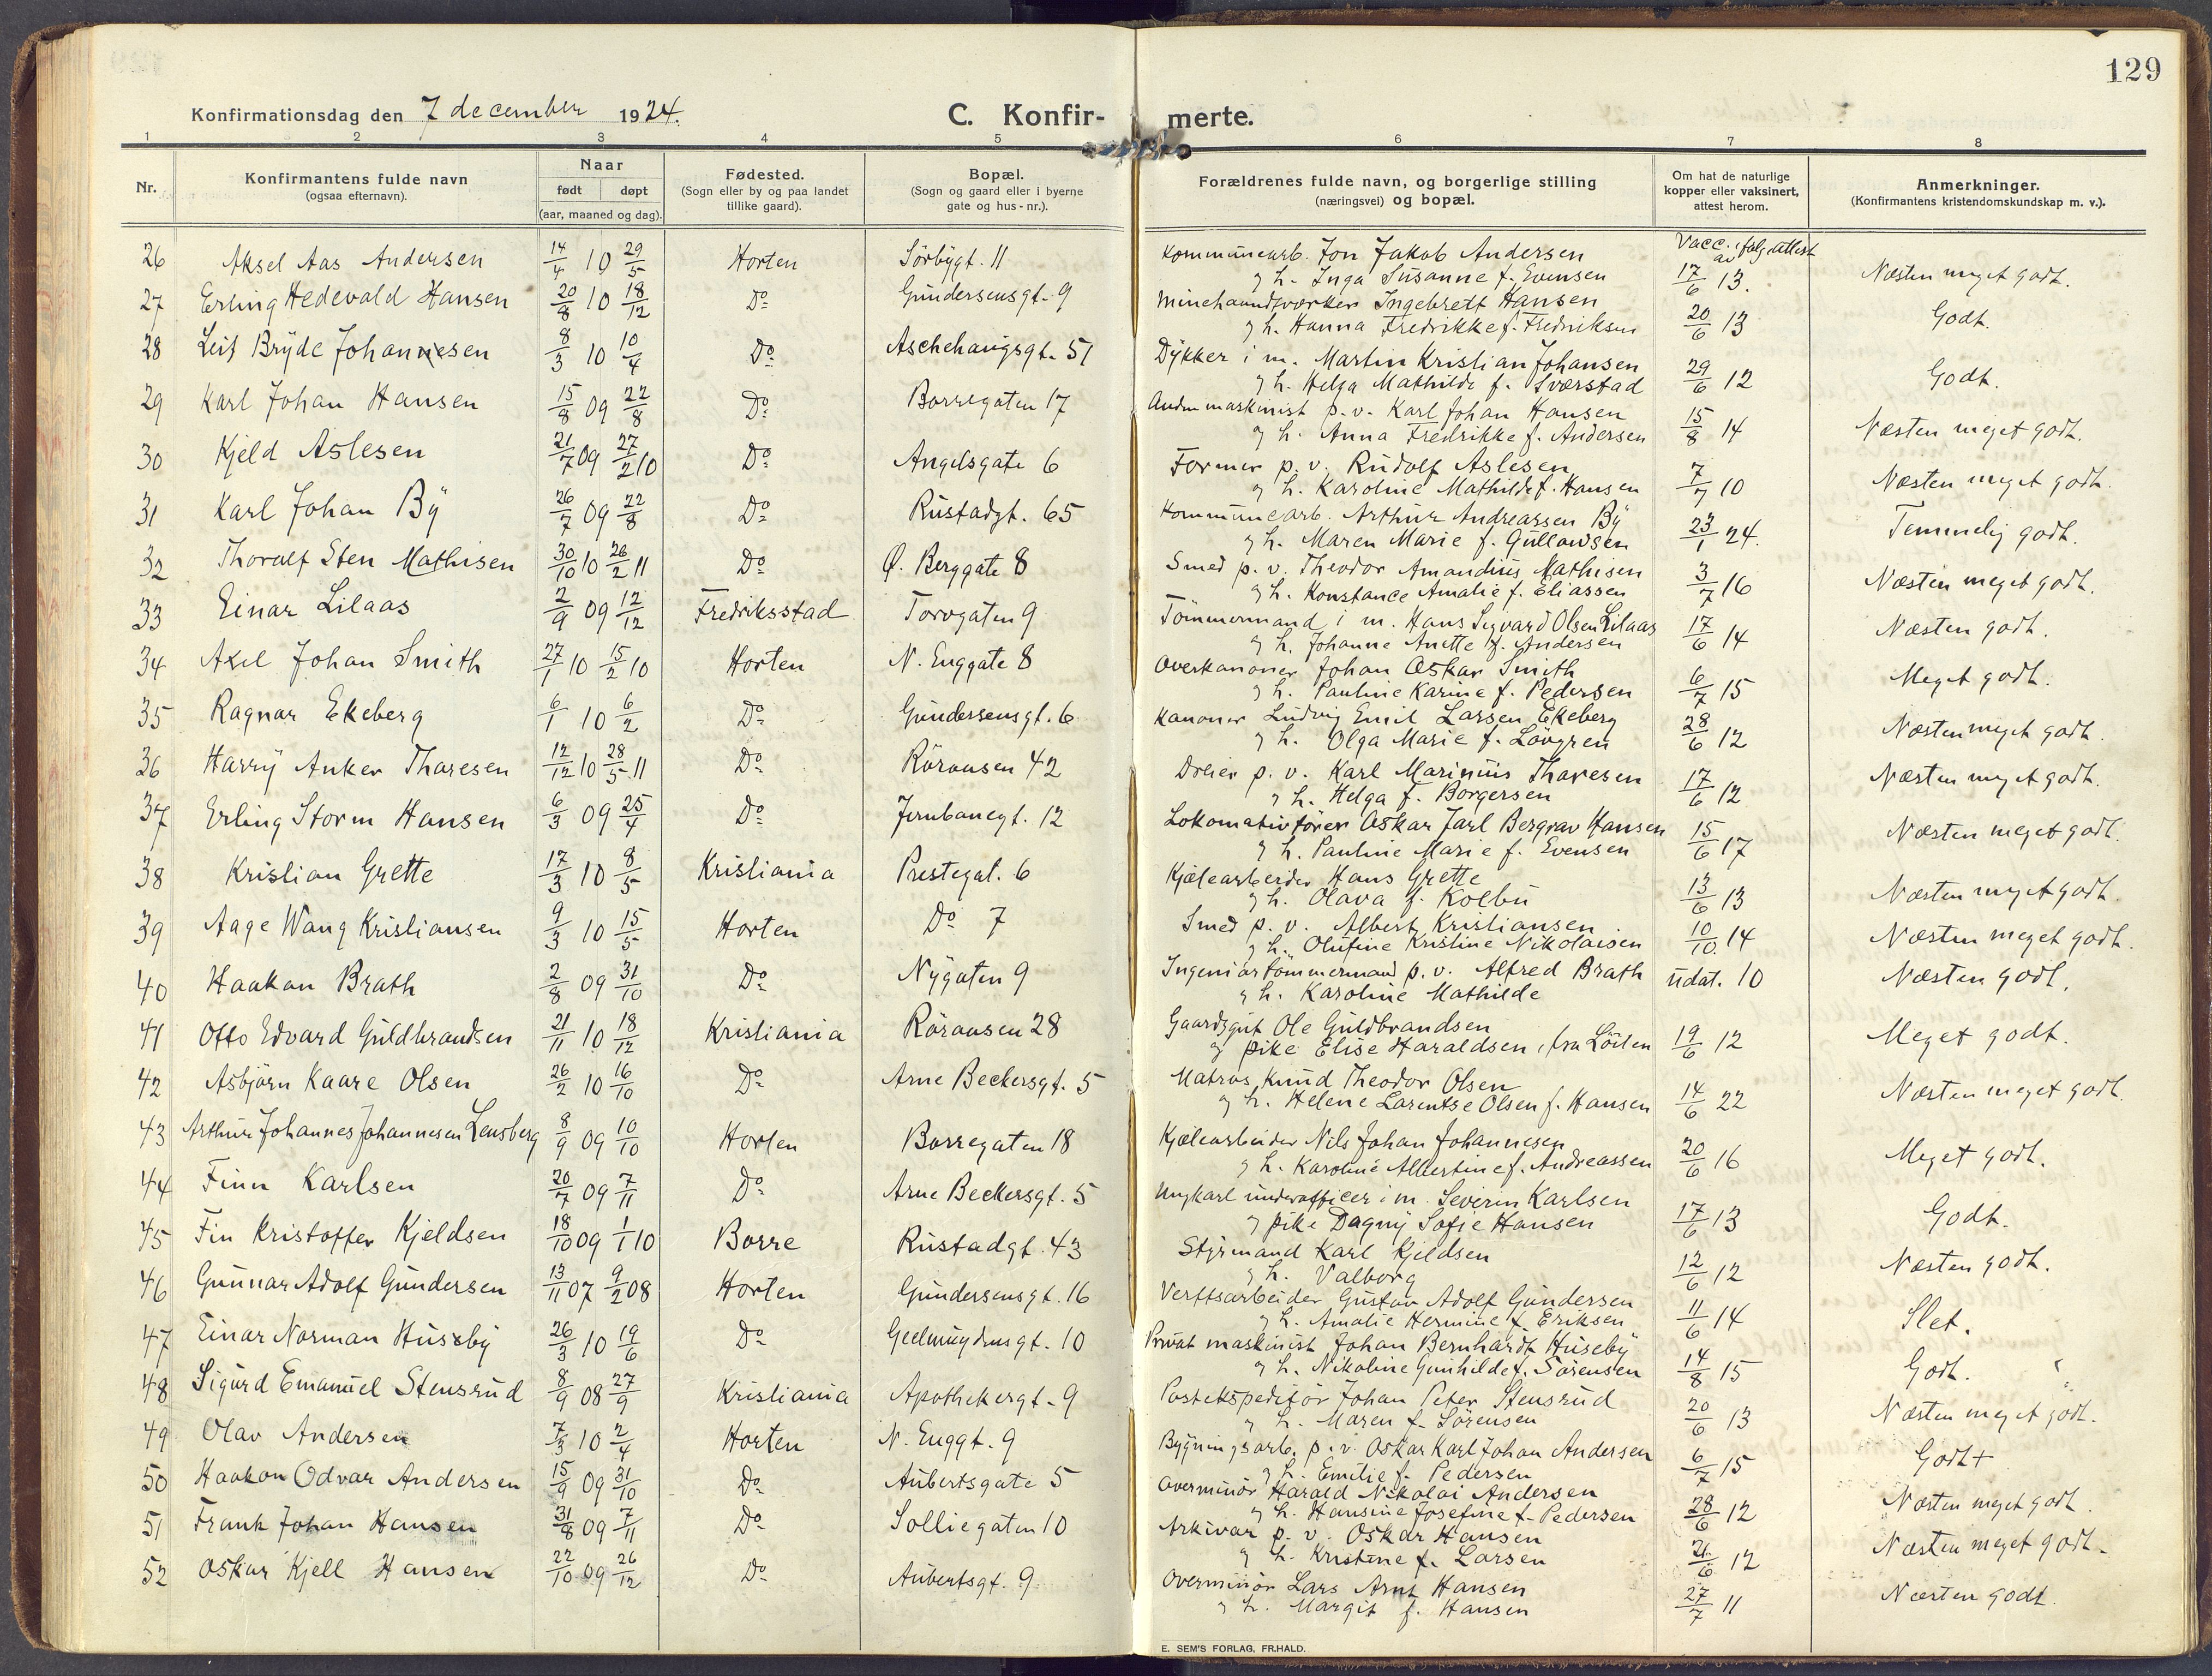 129
Konfirmationsdag den 7 december 1924.
C. Konfir- merte.
1 2 3 4 5 6 7 8
Nr.
Konfirmantens fulde navn
(ogsaa efternavn).
Naar
født døpt
(aar, maaned og dag).
Fødested.
(Sogn eller by og paa landet
tillike gaard).
Bopæl.
(Sogn og gaard eller i byerne
gate og hus-nr.).
Forældrenes fulde navn, og borgerlige stilling
(næringsvei) og bopæl.
Om hat de naturlige
kopper eller vaksinert,
attest herom.
Anmerkninger.
(Konfirmantens kristendomskundskap m. v.).
Vacc. ifølg attest av
26 Aksel Aas Andersen 14/4 10 29/5 Horten Sørbygt. 11 Kommunearb. Jon Jakob Andersen
og h. Inga Susanne f. Evensen 17/6 13. Næsten meget godt.
27 Erling Hedevald Hansen 20/8 10 18/12 Do Gundersensgt. 9 Minehaandværker Ingebrett Hansen
og h. Hanna Fredrikke f. Fredriksen 20/6 13 Godt.
28 Leif Bryde Johannesen 8/3 10 10/4 Do Aschehaugsgt. 51 Dykker i m. Martin Kristian Johansen
og h. Helga Mathilde f. Sværstad 29/6 12 Godt.
29 Karl Johan Hansen 15/8 09 22/8 Do Borregaten 17 Andenmaskinist p. v. Karl Johan Hansen
og h. Anna Fredrikke f. Andersen 15/8 14 Næsten meget godt.
30 Kjeld Aslesen 21/7 09 27/2 10 Do Angelsgate 6 Former p. v. Rudolf Aslesen
og h. Karoline Mathilde f. Hansen 7/7 10 Næsten meget godt.
31 Karl Johan By 26/7 09 22/8 Do Rustadgt. 65 Kommunearb. Arthur Andreassen By
og h. Maren Marie f. Gullowsen 23/1 24. Temmelig godt.
32 Thoralf Sten Mathisen 30/10 10 26/2 11 Do Ø. Berggate 8 Smed p. v. Theodor Amandius Mathisen
og h. Konstance Amalie f. Eliassen 3/7 16 Næsten meget godt.
33 Einar Lilaas 2/9 09 12/12 Fredriksstad Torvgaten 9 Tømmermand i m. Hans Sigvard Olsen Lilaas
og h. Johanne Anette f. Andersen 17/6 14 Næsten godt.
34 Axel Johan Smith 27/1 10 15/2 10 Horten N. Enggate 8 Overkanoner Johan Oskar Smith
og h. Pauline Karine f. Pedersen 6/7 15 Meget godt.
35 Ragnar Ekeberg 6/1 10 6/2 Do Gundersensgt. 6 Kanoner Ludvig Emil Larsen Ekeberg
og h. Olga Marie f. Løvgren 28/6 12 Næsten meget godt.
36 Harry Anker Tharesen 12/12 10 28/5 11 Do Røraasen 42 Dreier p. v. Karl Marinius Tharesen
og h. Helga f. Borgersen 17/6 12 Næsten meget godt.
37 Erling Storm Hansen 6/3 09 25/4 Do Jernbanegt. 12 Lokomotivfører Oskar Jarl Bergrav Hansen
og h. Pauline Marie f. Evensen 15/6 17 Næsten meget godt.
38 Kristian Grette 17/3 10 8/5 Kristiania Prestegat. 6 Kjelearbeider Hans Grette
og h. Olava f. Kolbu 13/6 13 Næsten meget godt.
39 Aage Wang Kristiansen 9/3 10 15/5 Horten Do 7 Smed p. v. Albert Kristiansen
og h. Olufine Kristine Nikolaisen 10/10. 14 Næsten meget godt.
40 Haakon Brath 2/8 09 31/10 Do Nygaten 9 Ingeniørtømmermand p. v. Alfred Brath
og h. Karoline Mathilde udat. 10 Næsten godt.
41 Otto Edvard Guldbrandsen 21/11 10 18/12 Kristiania Røraasen 28 Gaardsgut Ole Guldbrandsen
og pike Elise Haraldsen, fra Løiten 19/6 12 Meget godt.
42 Asbjørn Kaare Olsen 26/2 10 16/10 Do Arne Beckersgt. 5 Matros Knud Theodor Olsen
og h. Helene Larentse Olsen f. Hansen 14/6 22 Næsten meget godt.
43 Arthur Johannes Johannesen Lensberg 8/9 09 10/10 Horten Borregaten 18 Kjelearbeider Nils Johan Johannesen
og h. Karoline Albertine f. Andreassen 20/6 16 Meget godt.
44 Finn Karlsen 20/7 09 7/11 Do Arne Beckersgt. 5 Ungkarl underofficer i m. Severin Karlsen
og pike Dagny Sofie Hansen 17/6 13 Godt.
45 Fin Kristoffer Kjeldsen 18/10 09 1/1 10 Borre Rustadgt. 43 Styrmand Karl Kjeldsen
og h. Valborg 12/6 12 Næsten godt.
46 Gunnar Adolf Gundersen 13/11 07 9/2 08 Horten Gundersensgt. 16 Verftsarbeider Gustav Adolf Gundersen
og h. Amalie Hermine f. Eriksen 11/6 14 Slet.
47 Einar Norman Huseby 26/3 10 19/6 Do Geelmuydensgt. 10 Privat maskinist Johan Bernhardt Huseby
og h. Nikoline Gunhilde f. Sørensen 14/8 15 Godt.
48 Sigurd Emanuel Stensrud 8/9 08 27/9 Kristiania Apothekergt. 9 Postekspeditør Johan Peter Stensrud
og h. Maren f. Sørensen 20/6 13 Næsten meget godt.
49 Olav Andersen 7/3 10 2/4 Horten N. Enggt. 9 Bygningsarb. p. v. Oskar Karl Johan Andersen
og h. Emilie f. Pedersen 6/7 15 Godt+
50 Haakon Odvar Andersen 15/9 09 31/10 Do Aubertsgate 5 Overminør Harald Nikolai Andersen
og h. Hansine Josefine f. Pedersen 28/6 12 Næsten meget godt.
51 Frank Johan Hansen 31/8 09 7/11 Do Solliegaten 10 Arkivar p. v. Oskar Hansen
og h. Kristine f. Larsen 21/6 12 Næsten meget godt.
52 Oskar Kjell Hansen 22/10 09 26/12 Do Aubertsgt. 9 Overminør Lars Arnt Hansen
og h. Margit f. Hansen 27/7 11 Næsten godt.
E. SEM'S FORLAG, FR.HALD.